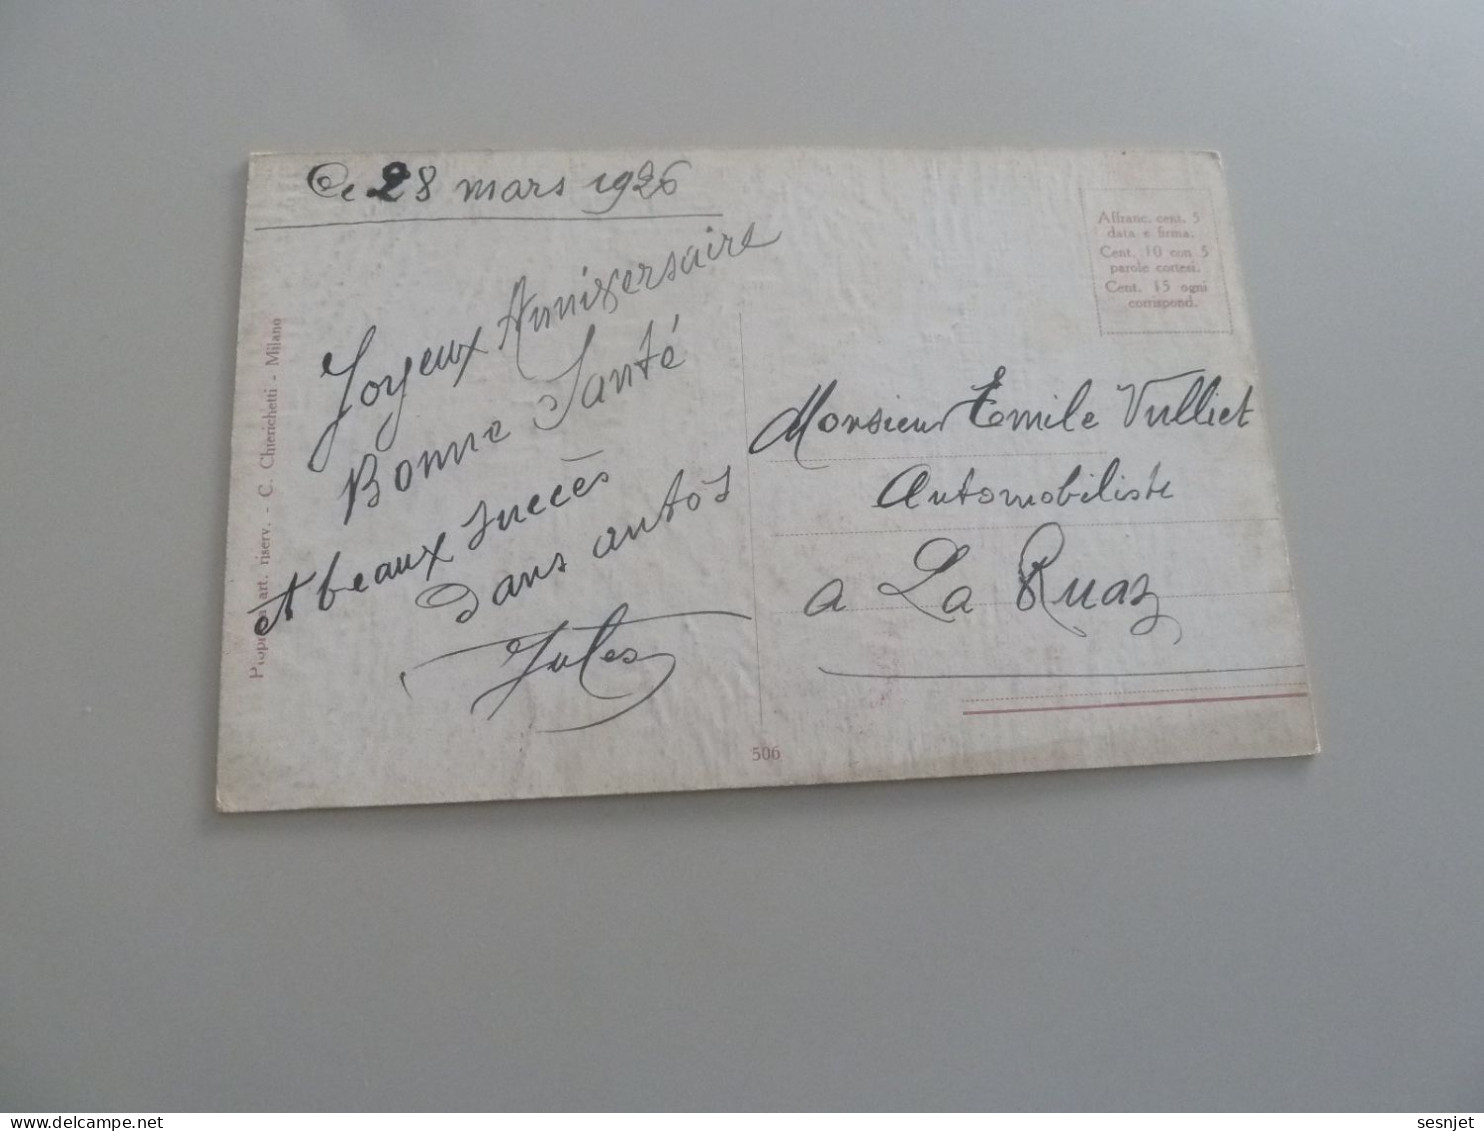 Ce 28 mars 1926
Joyeux Anniversaire
Bonne Santé
et beaux succès
dans autos
Jules
Propriet. art. riserv. - C. Chierichetti - Milano
Affranc. cent. 5
data e firma.
Cent. 10 con 5
parole cortesi.
Cent. 15 ogni
corrispond.
Monsieur Emile Vulliet
Automobiliste
a La Ruaz
506
delcampe.net
sesnjet